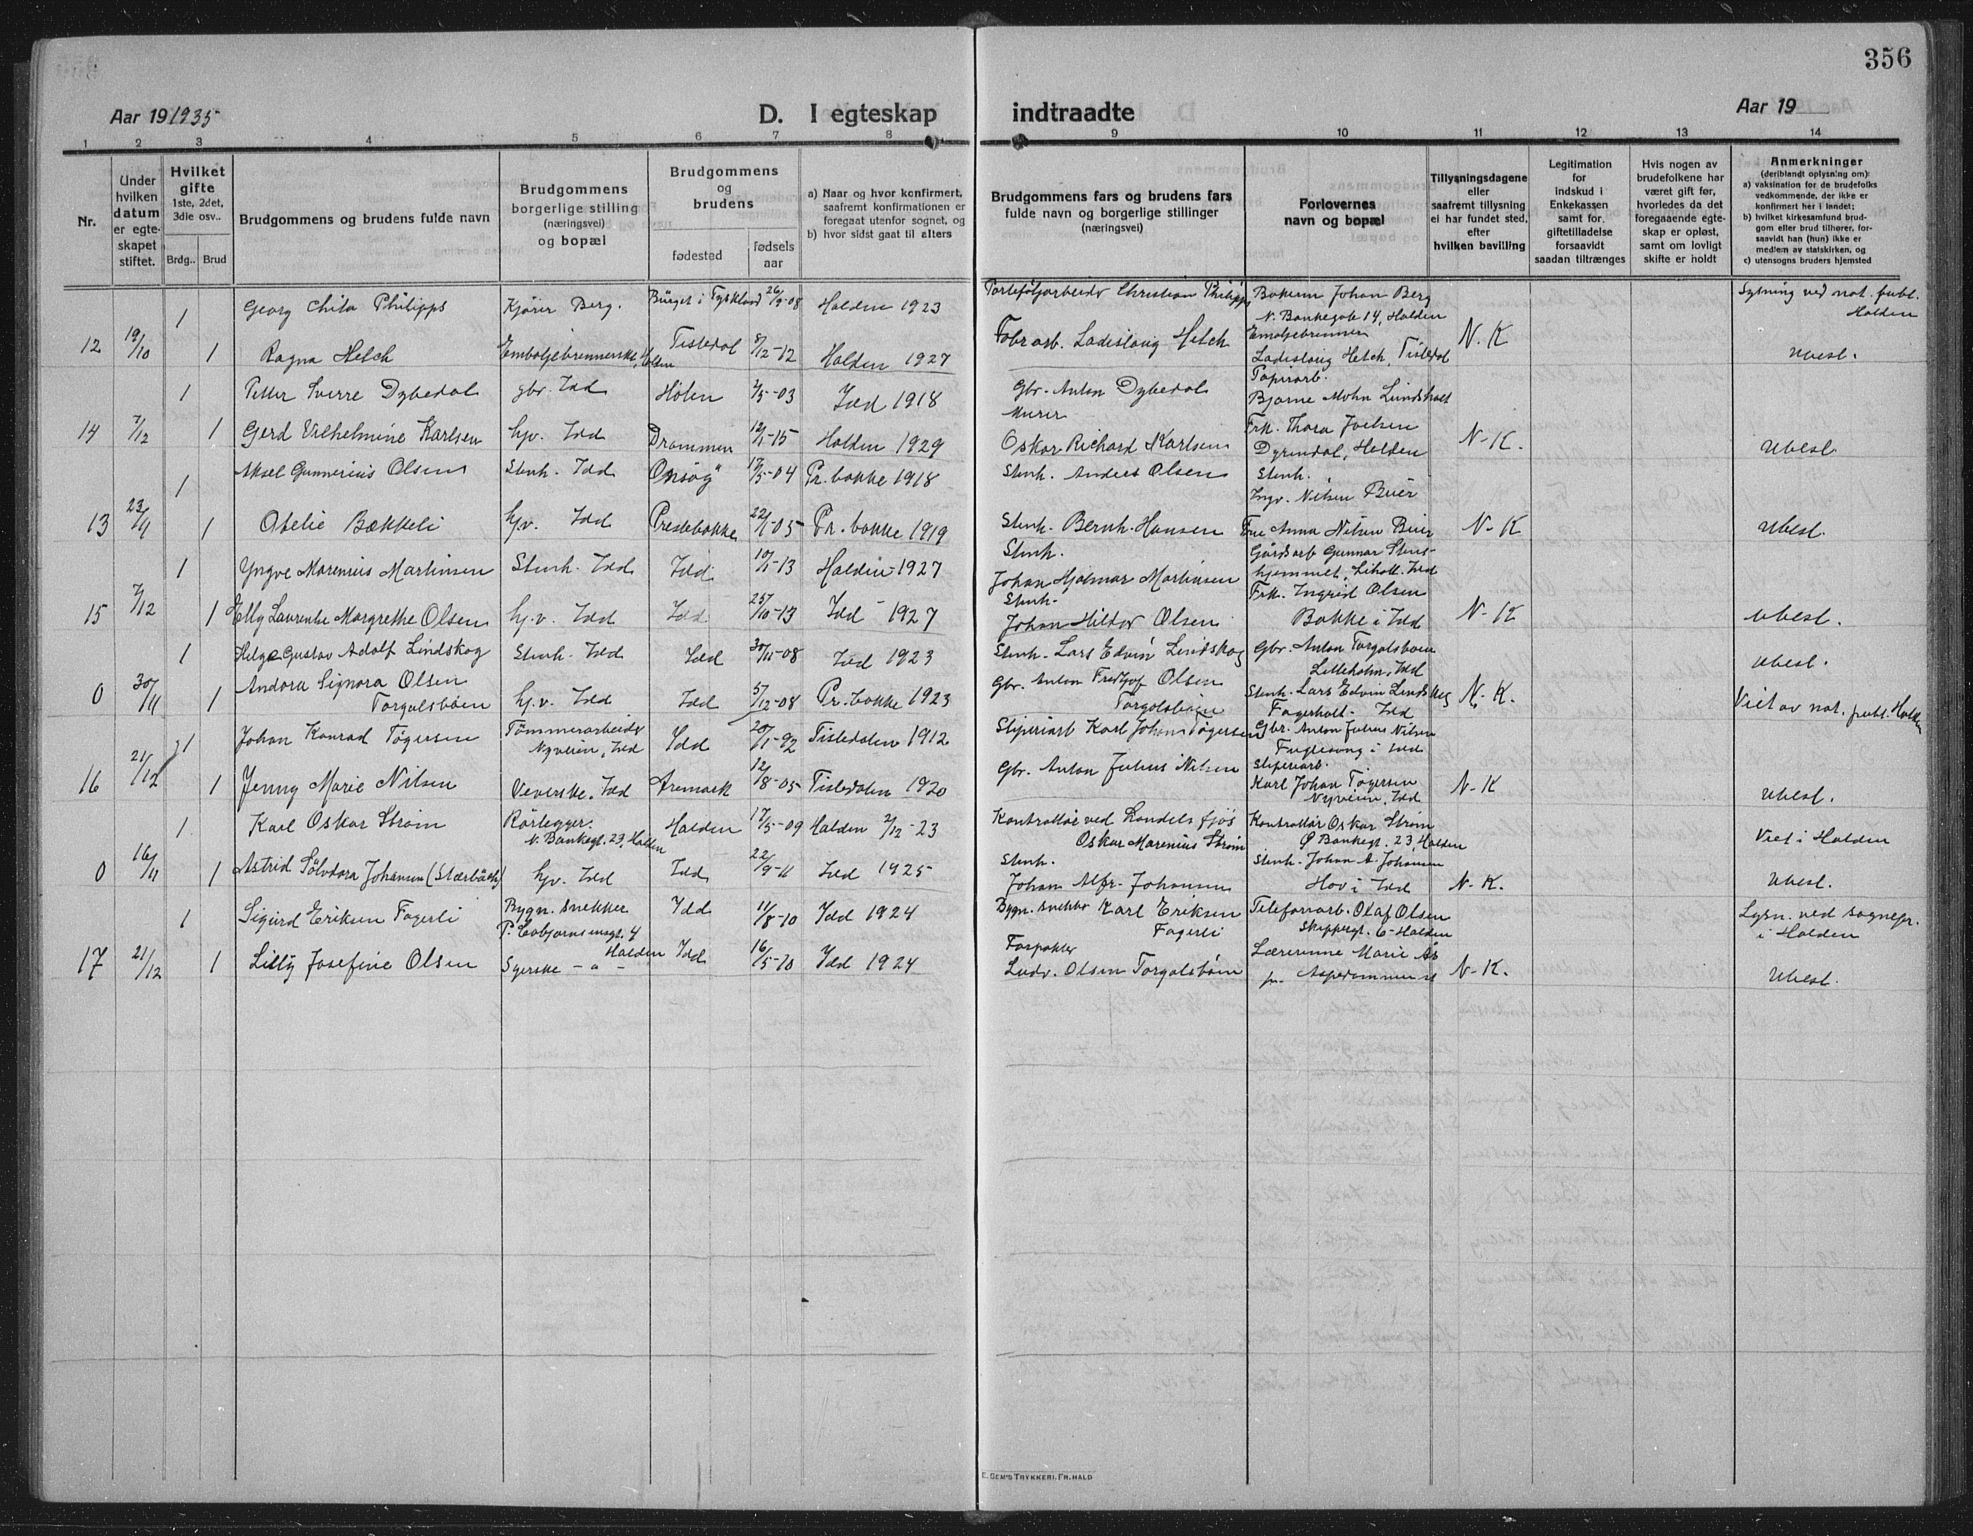 356
Aar 19 1935
D. I egteskap
indtraadte
Aar 19
1 2 3 4 5 6 7 8 9 10 11 12 13 14
Nr.
Under hvilken datum er egteskapet stiftet.
Hvilket gifte 1ste, 2det, 3die osv..
Brdg..
Brud
Brudgommens og brudens fulde navn
Brudgommens borgerlige stilling (næringsvei) og bopæl
Brudgommens og brudens
fødested
fødsels aar
a) Naar og hvor konfirmert, saafremt konfirmationen er foregaat utenfor sognet, og
b) hvor sidst gaat til alters
Brudgommens fars og brudens fars fulde navn og borgerlige stillinger (næringsvei)
Forlovernes navn og bopæl
Tillysningsdagene eller saafremt tillysning ei har fundet sted, efter hvilken bevilling
Legitimation for indskud i Enkekassen samt for giftetilladelse forsaavidt saadan tiltrænges
Hvis nogen av brudefolkene har været gift før, hvorledes da det foregaaende egteskap er opløst, samt om lovligt skifte er holdt
Anmerkninger (deriblandt oplysning om):
a) vaksination for de brudefolks vedkommende, der ikke er konfirmert her i landet;
b) hvilket kirkesamfund brudgom eller brud tilhører, forsaavidt han (hun) ikke er medlem av statskirken, og
c) utensogns bruders hjemsted
1 Georg Philipps Kjører Berg. 26/9-08 Halden 1923 Christian Philipps Johan Berg N. Bankegate 14, Halden Lysning ved not. publ. Halden
12 19/10 1 Ragna Hetch Tistedal 8/12-12 Halden 1927 Fabr arb. Ladislaug Hetch Ladislaug Hetch, Tistedal N. K Ubest.
1 Petter Sverre Dybedal gbr. Idd Hölen 2/5-03 Idd 1918 Gbr. Anton Dybedal Papirarb. Bjarne Mohn Lundsholt
14 7/12 1 Gerd Vilhelmine Karlsen hjv. Idd Drammen 12/1-15 Halden 1929 Murer Oskar Richard Karlsen Frk. Thora Joelsen Dyrendal, Halden N-K. Ubest.
1 Aksel Gunnerius Olsen Stenh. Idd Onsöy 17/5-04 Pr. bakke 1918 Stenh. Andreas Olsen Stenh. Ingv. Nilsen Buer
13 23/11 1 Otelie Bækkeli hjv. Idd Prestebakke 22/1-05 Pr. bakke 1919 Stenh. Bernh. Hansen Frue Anna Nilsen Buer N-K Ubest.
1 Yngve Marenius Martinsen Stenh. Idd Idd 10/1-13 Halden-1927 Stenh. Johan Hjalmar Martinsen Gårdsarb Gunnar Stenshjemmet, Liholt. Idd
15 7/12 1 Elly Laurentse Margrethe Olsen hj.v. Idd Idd 25/10-13 Idd - 1927 Stenh. Johan Hilder Olsen Frk. Ingrid Olsen Bakke i Idd N-K Ubest.
1 Helge Gustav Adolf Lindskog Stenh. Idd Idd 30/11-08 Idd 1923 Stenh. Lars Edvin Lindskog Gbr. Anton Torgalsbøen Lilleholm, Idd Ubest.
0 30/11 1 Andora Signora Olsen Torgalsbøen hj.v. Idd Idd 5/12-08 Pr. bakke 1923 Gbr. Anton Fredhjof Olsen Torgalsbøen Stenh. Lars Edvin Lindskog Fagerholt. Idd N. K. Viet av not. publ. Halden
1 Johan Konrad Tögersen Tömmerarbeider Nyveien, Idd Idd 20/1-92 Tistedalen 1912 Sliperiarb Karl Johan Tögersen Gbr. Anton Julius Nilsen Fuglesang i Idd
16 21/12 1 Jenny Marie Nilsen Veverske. Idd Aremark 12/8-05 Tistedalen 1920 Gbr. Anton Julius Nilsen Sliperiarb. Karl Johan Tögersen Nyveien, Idd N-K Ubest.
1 Karl Oskar Strøm Rørlegger. N. Bankegt. 23, Halden Halden 17/5-09 Halden 2/12-23 Kontrollør ved Oskar Marenius Strøm Kontrollør Oskar Strøm Ø Bankegt. 23, Halden Viet i Halden
0 16/11 1 Astrid Sölvdora Johansen hjv. Idd Idd 22/9-11 Idd 1925 Stenh. Johan Alfr. Johansen Stenh. Johan A. Johansen Hov i Idd N-K. Ubest.
1 Sigurd Eriksen Fagerli Bygn. snekker Halden Idd 11/8-10 Idd 1924 Bygn. snekker Karl Eriksen Fagerli Telefonarb. Olaf Olsen Skippergt. 6-Halden Lysn. ved sognepr. i Halden
17 21/12 1 Lilly Josefine Olsen Syerske - " - Idd 16/5-10 Idd 1924 Forpakter Ludv. Olsen Torgalsbøen Lærerinne Marie Ås N-K. Ubest.
E. SEM'S TRYKKERI. FR.HALD